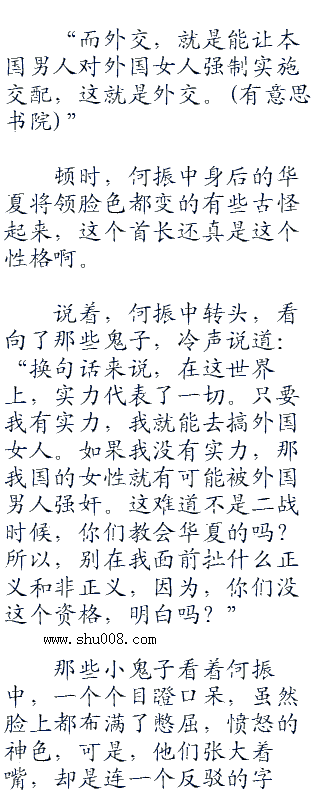 “而外交，就是能让本
国男人对外国女人强制实施
交配，这就是外交。(有意思
书院)”
顿时，何振中身后的华
夏将领脸色都变的有些古怪
起来，这个首长还真是这个
性格啊。
说着，何振中转头，看
向了那些鬼子，冷声说道：
“换句话来说，在这世界
上，实力代表了一切。只要
我有实力，我就能去搞外国
女人。如果我没有实力，那
我国的女性就有可能被外国
男人强奸。这难道不是二战
时候，你们教会华夏的吗？
所以，别在我面前扯什么正
义和非正义，因为，你们没
这个资格，明白吗？”
www.shu008.com
那些小鬼子看着何振
中，一个个目瞪口呆，虽然
脸上都布满了憋屈，愤怒的
神色，可是，他们张大着
嘴，却是连一个反驳的字